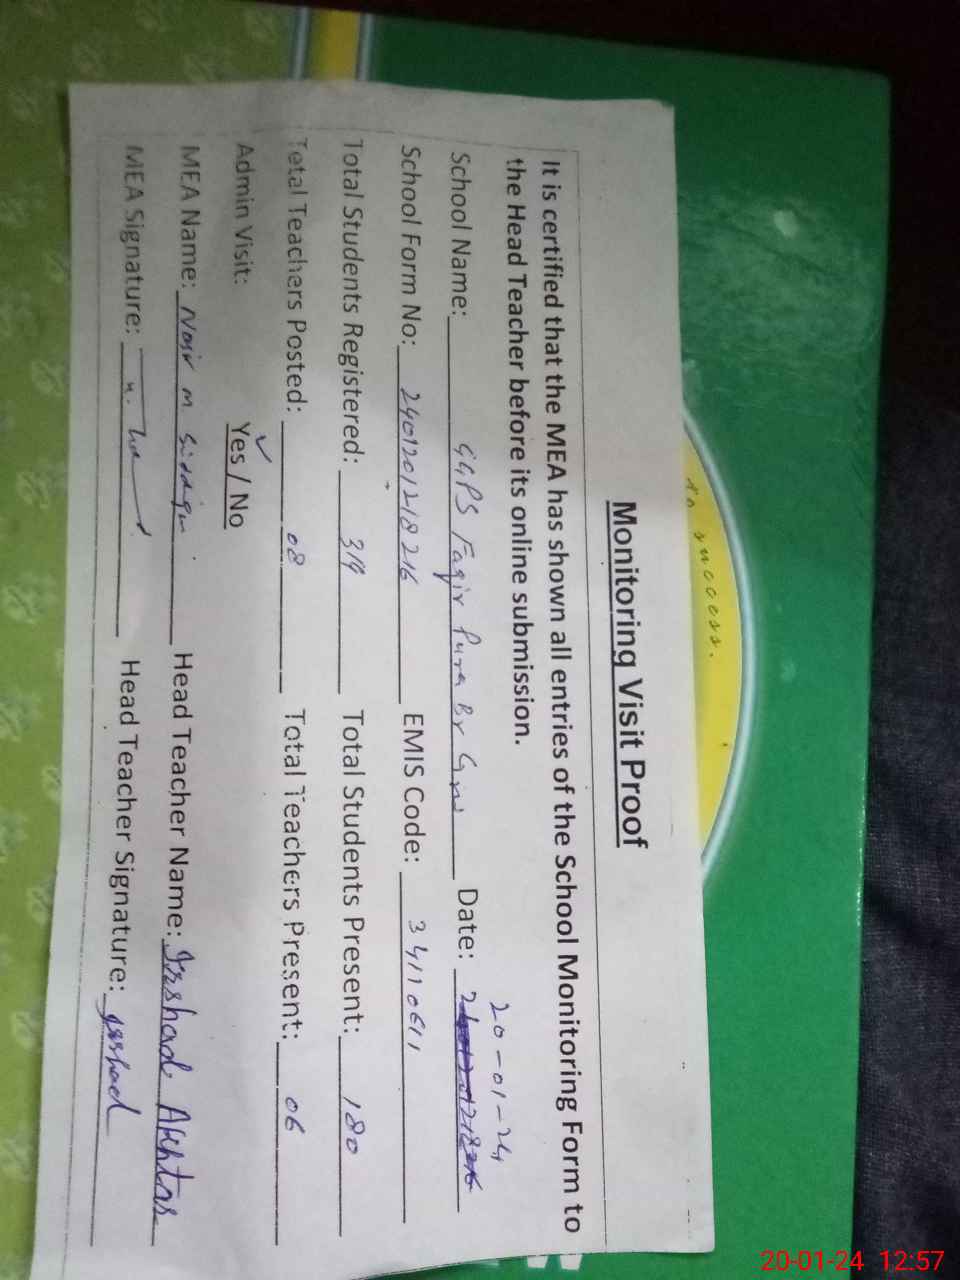 to success.
Monitoring Visit Proof
It is certified that the MEA has shown all entries of the School Monitoring Form to
the Head Teacher before its online submission.
20-01-24
School Name: GGPS Faqir Pura By Date:
School Form No: 2401201218216 EMIS Code: 34110611
Total Students Registered: 319 Total Students Present: 180
Total Teachers Posted: 08 Total Teachers Present: 06
Admin Visit: Yes / No
MEA Name: Nasir m Siddiqui Head Teacher Name: Irshad Akhtar
MEA Signature: Head Teacher Signature: Irshad
20-01-24 12:57